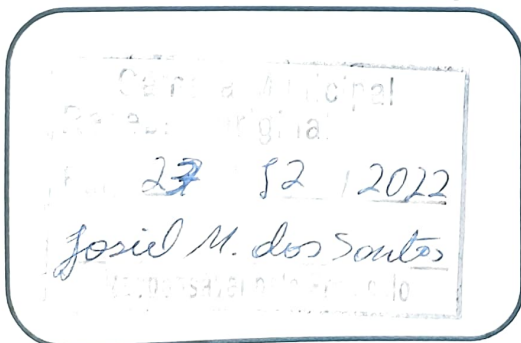 Câmara Municipal
Recebi Original
Em 27 / 12 / 2022
Josiel M. dos Santos